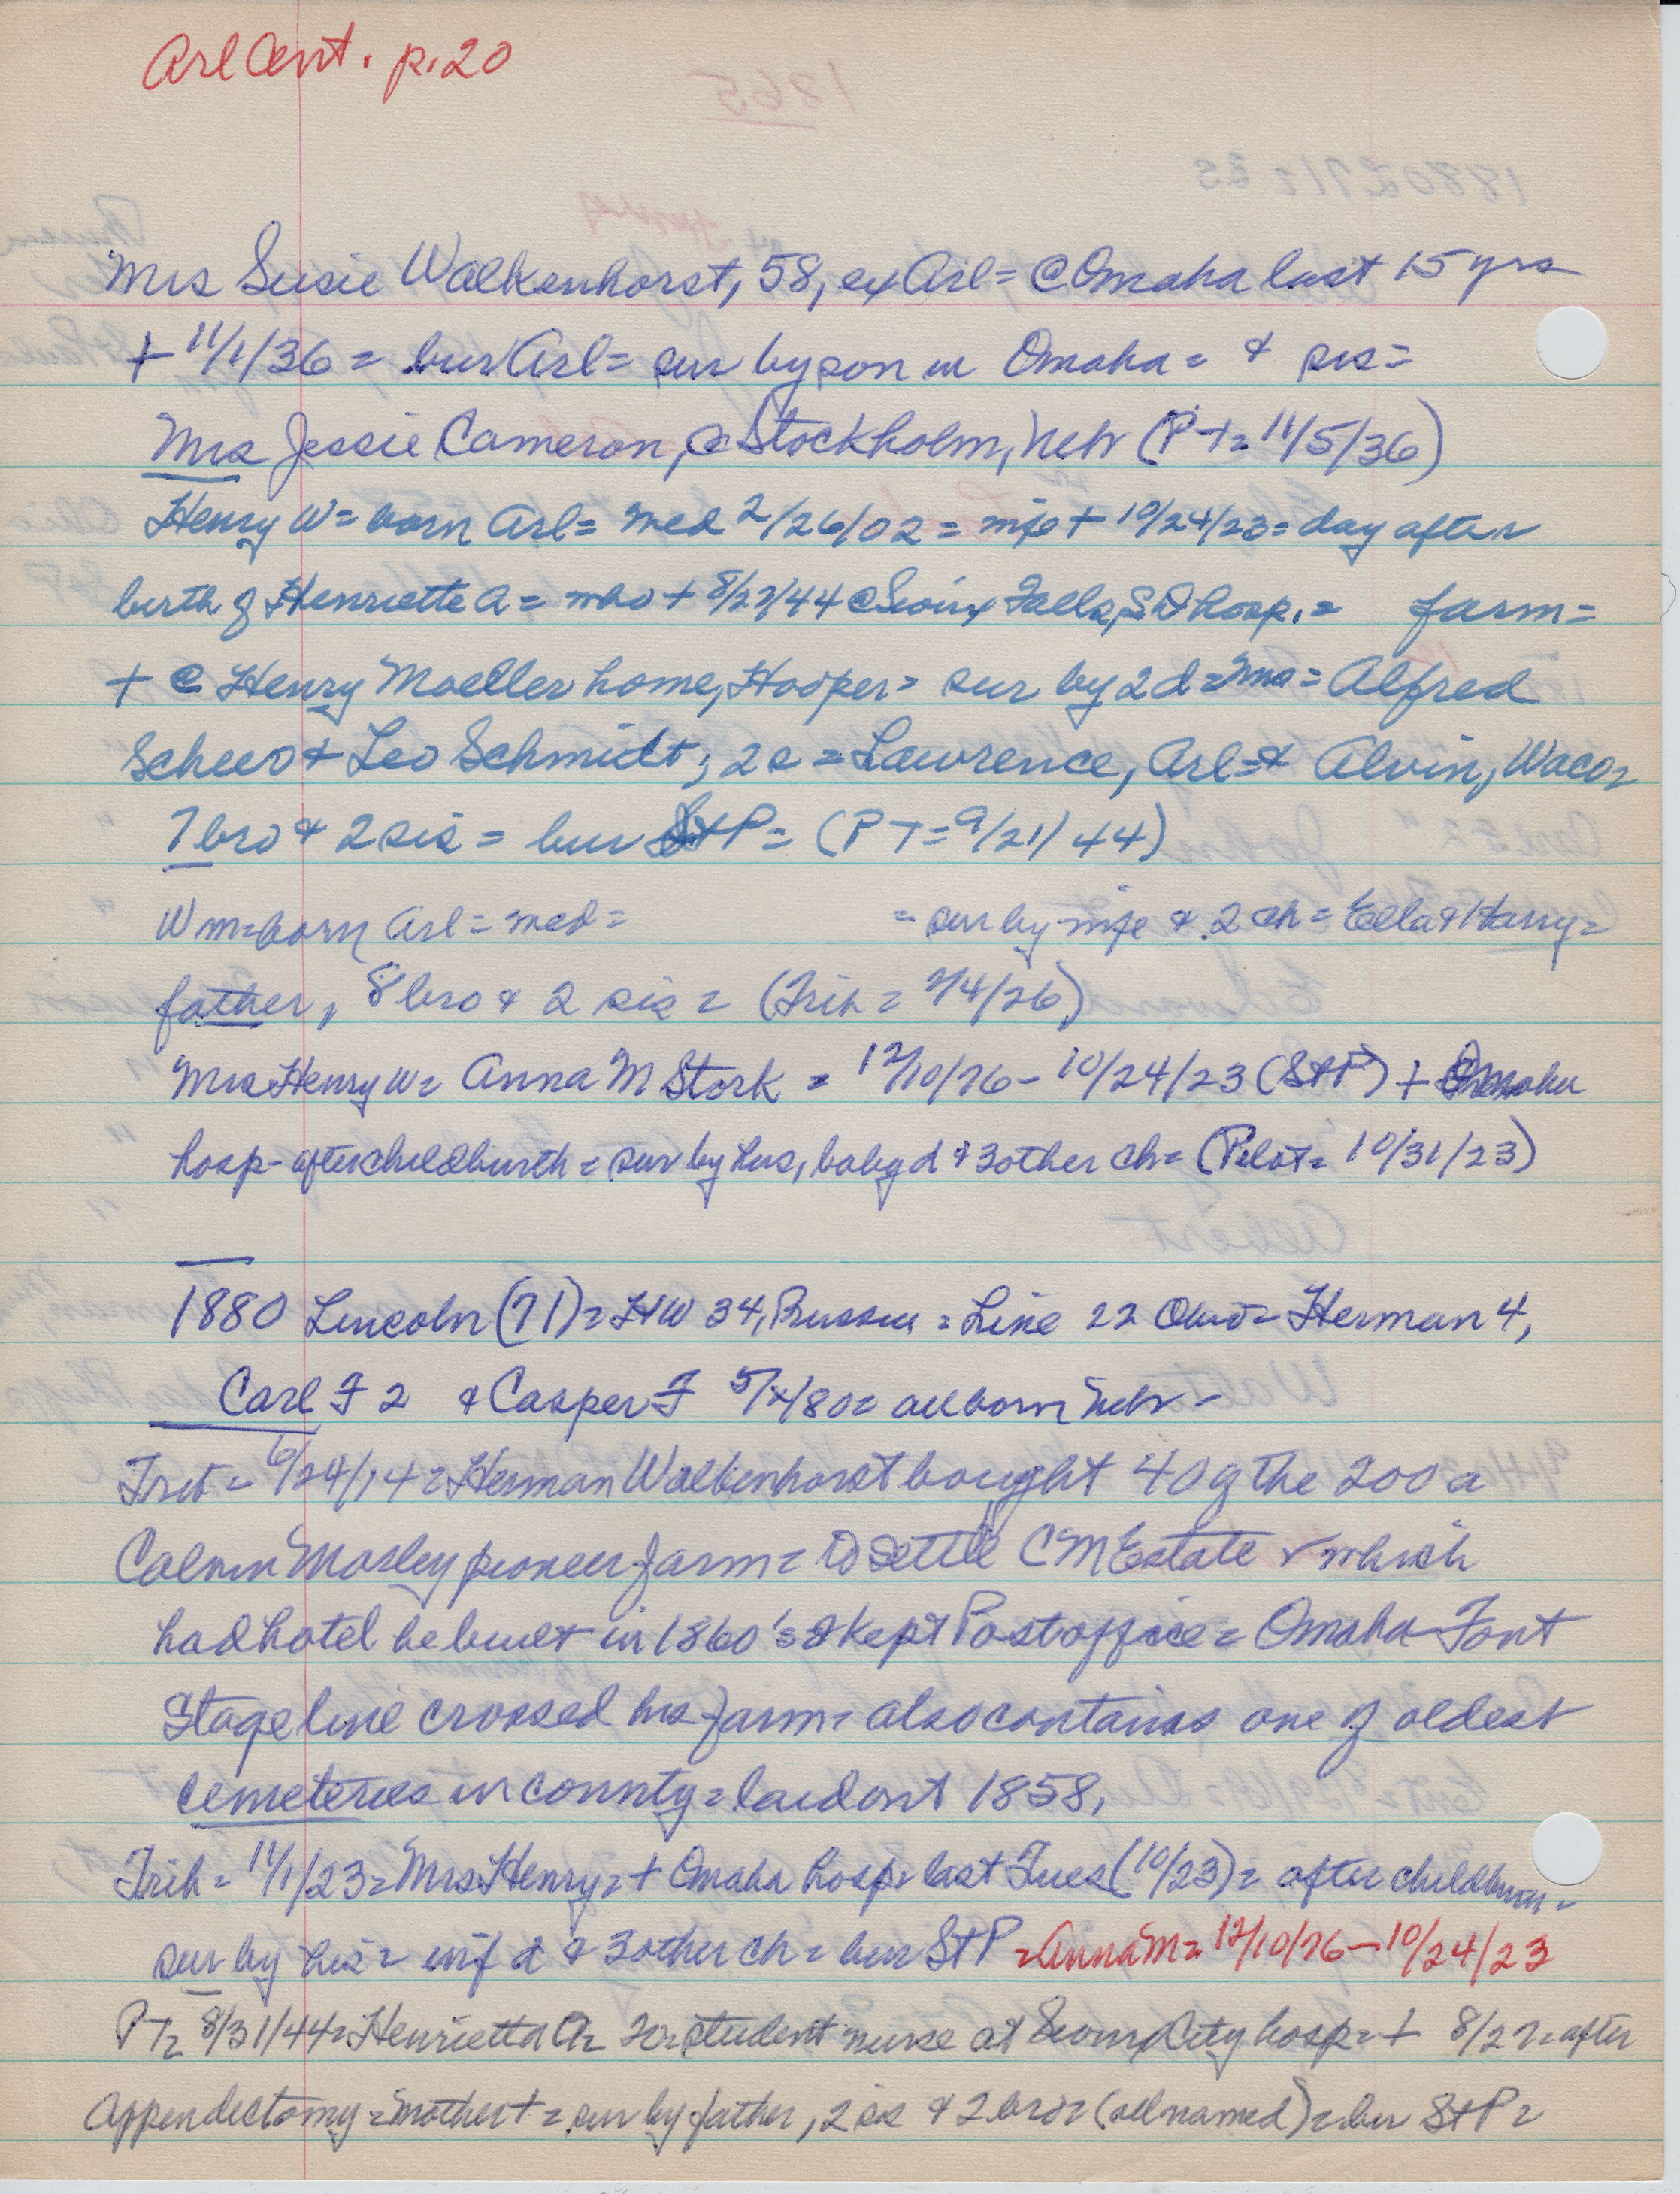 Arl Cent. p. 20
Mrs Susie Walkenhorst, 58, ex Arl = @ Omaha last 15 yrs
+ 11/1/36 = bur Arl = sur by son in Omaha = & sis =
Mrs Jessie Cameron, @ Stockholm, Nebr (P T = 11/5/36)
Henry W = born Arl = med 2/26/02 = wife + 10/24/23 = day after
birth of Henriette A = who + 8/27/44 @ Sioux Falls, SD hosp. = farm =
+ @ Henry Moeller home, Hooper = sur by 2 d = Mrs = Alfred
Scheer & Leo Schmidt; 2 s = Lawrence, Arl = & Alvin, Waco =
7 bro & 2 sis = bur St P = (P T = 9/21/44)
Wm = born Arl = med = = sur by wife & 2 ch = Ella & Harry =
father, 8 bro & 2 sis = (Trib = 7/4/26)
Mrs Henry W = Anna M Stork = 12/10/76 - 10/24/23 (St P) + Omaha
hosp - after childbirth = sur by hus, baby d & 3 other ch = (Pilot = 10/31/23)
1880 Lincoln (71) = HW 34, Prussia = Line 22 Ohio = Herman 4,
Carl F 2 & Casper F 5/x/80 = all born Nebr -
Trib = 6/24/14 = Herman Walkenhorst bought 40 of the 200 a
Calvin Mosley pioneer farm = to settle CM Estate & which
had hotel he built in 1860's & kept Postoffice = Omaha - Font
Stage line crossed his farm = also contains one of oldest
cemeteries in county = laid out 1858,
Trib = 11/1/23 = Mrs Henry = + Omaha hosp last Tues (10/23) = after childborn -
sur by hus = inf d & 3 other ch = bur St P = Anna M = 12/10/76 - 10/24/23
P T = 8/31/44 = Henrietta A = 20 = student nurse at Sioux City hosp = + 8/27 = after
Appendectomy = mother + = sur by father, 2 sis & 2 bro = (all named) = bur St P =